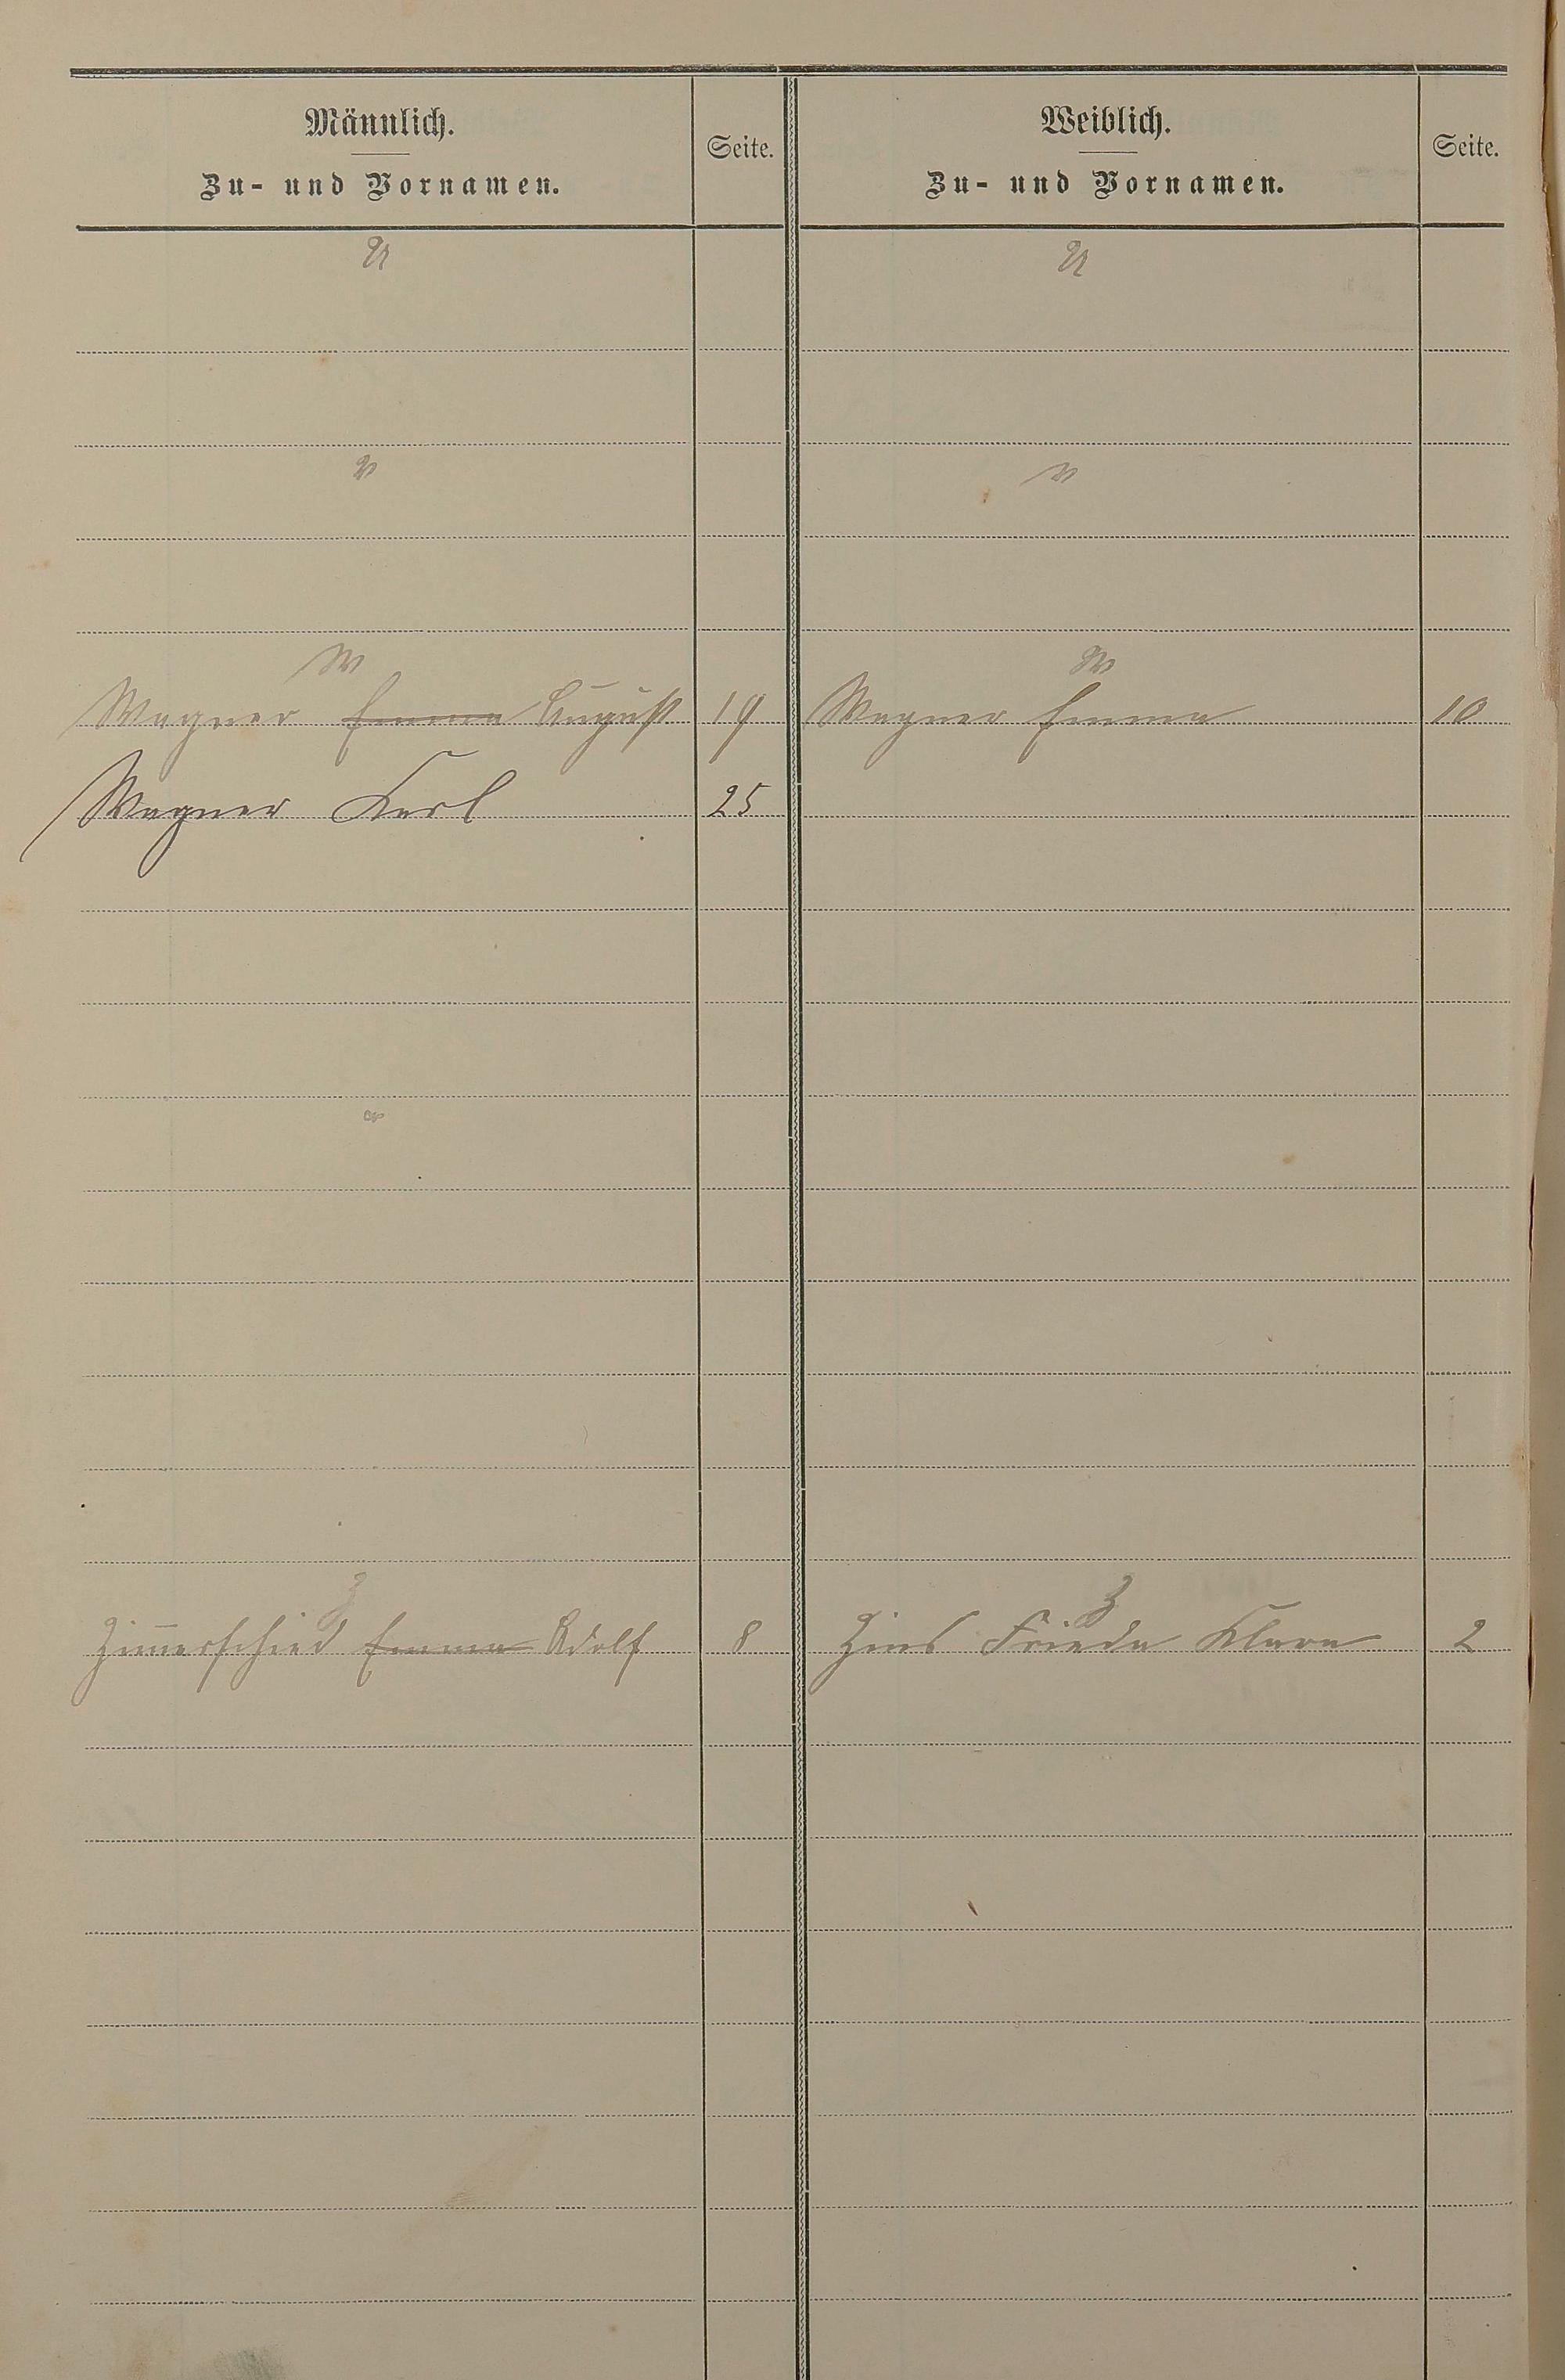 Männlich.
Zu- und Vornamen.
Seite.
Weiblich.
Zu- und Vornamen.
Seite.
U
U
V
V
W
W
Wagner Emma August 19 Wagner Emma 10
Wagner Karl 25
Z
Z
Zimmerschied Emma Adolf 8 Zins Frieda Klara 2